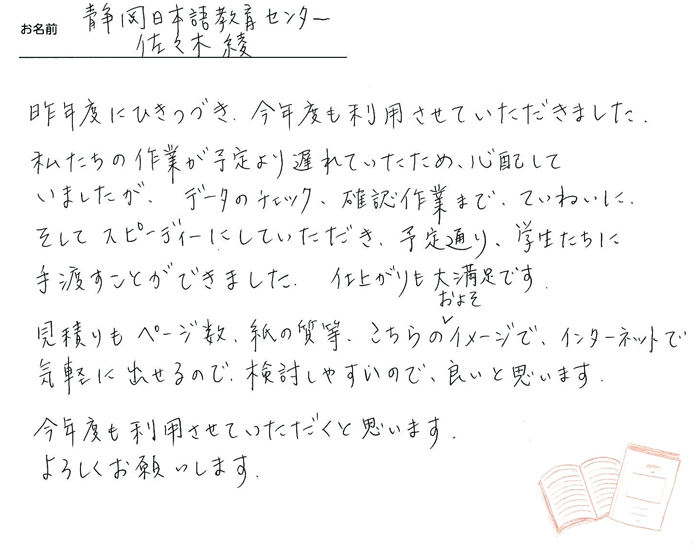 お名前 静岡日本語教育センター
佐々木 綾
昨年度にひきつづき、今年度も利用させていただきました。
私たちの作業が予定より遅れていたため、心配して
いましたが、データのチェック、確認作業まで、ていねいに、
そしてスピーディーにしていただき、予定通り、学生たちに
手渡すことができました。仕上がりも大満足です。
およそ
見積りもページ数、紙の質等、こちらのイメージで、インターネットで
気軽に出せるので、検討しやすいので、良いと思います。
今年度も利用させていただくと思います。
よろしくお願いします。